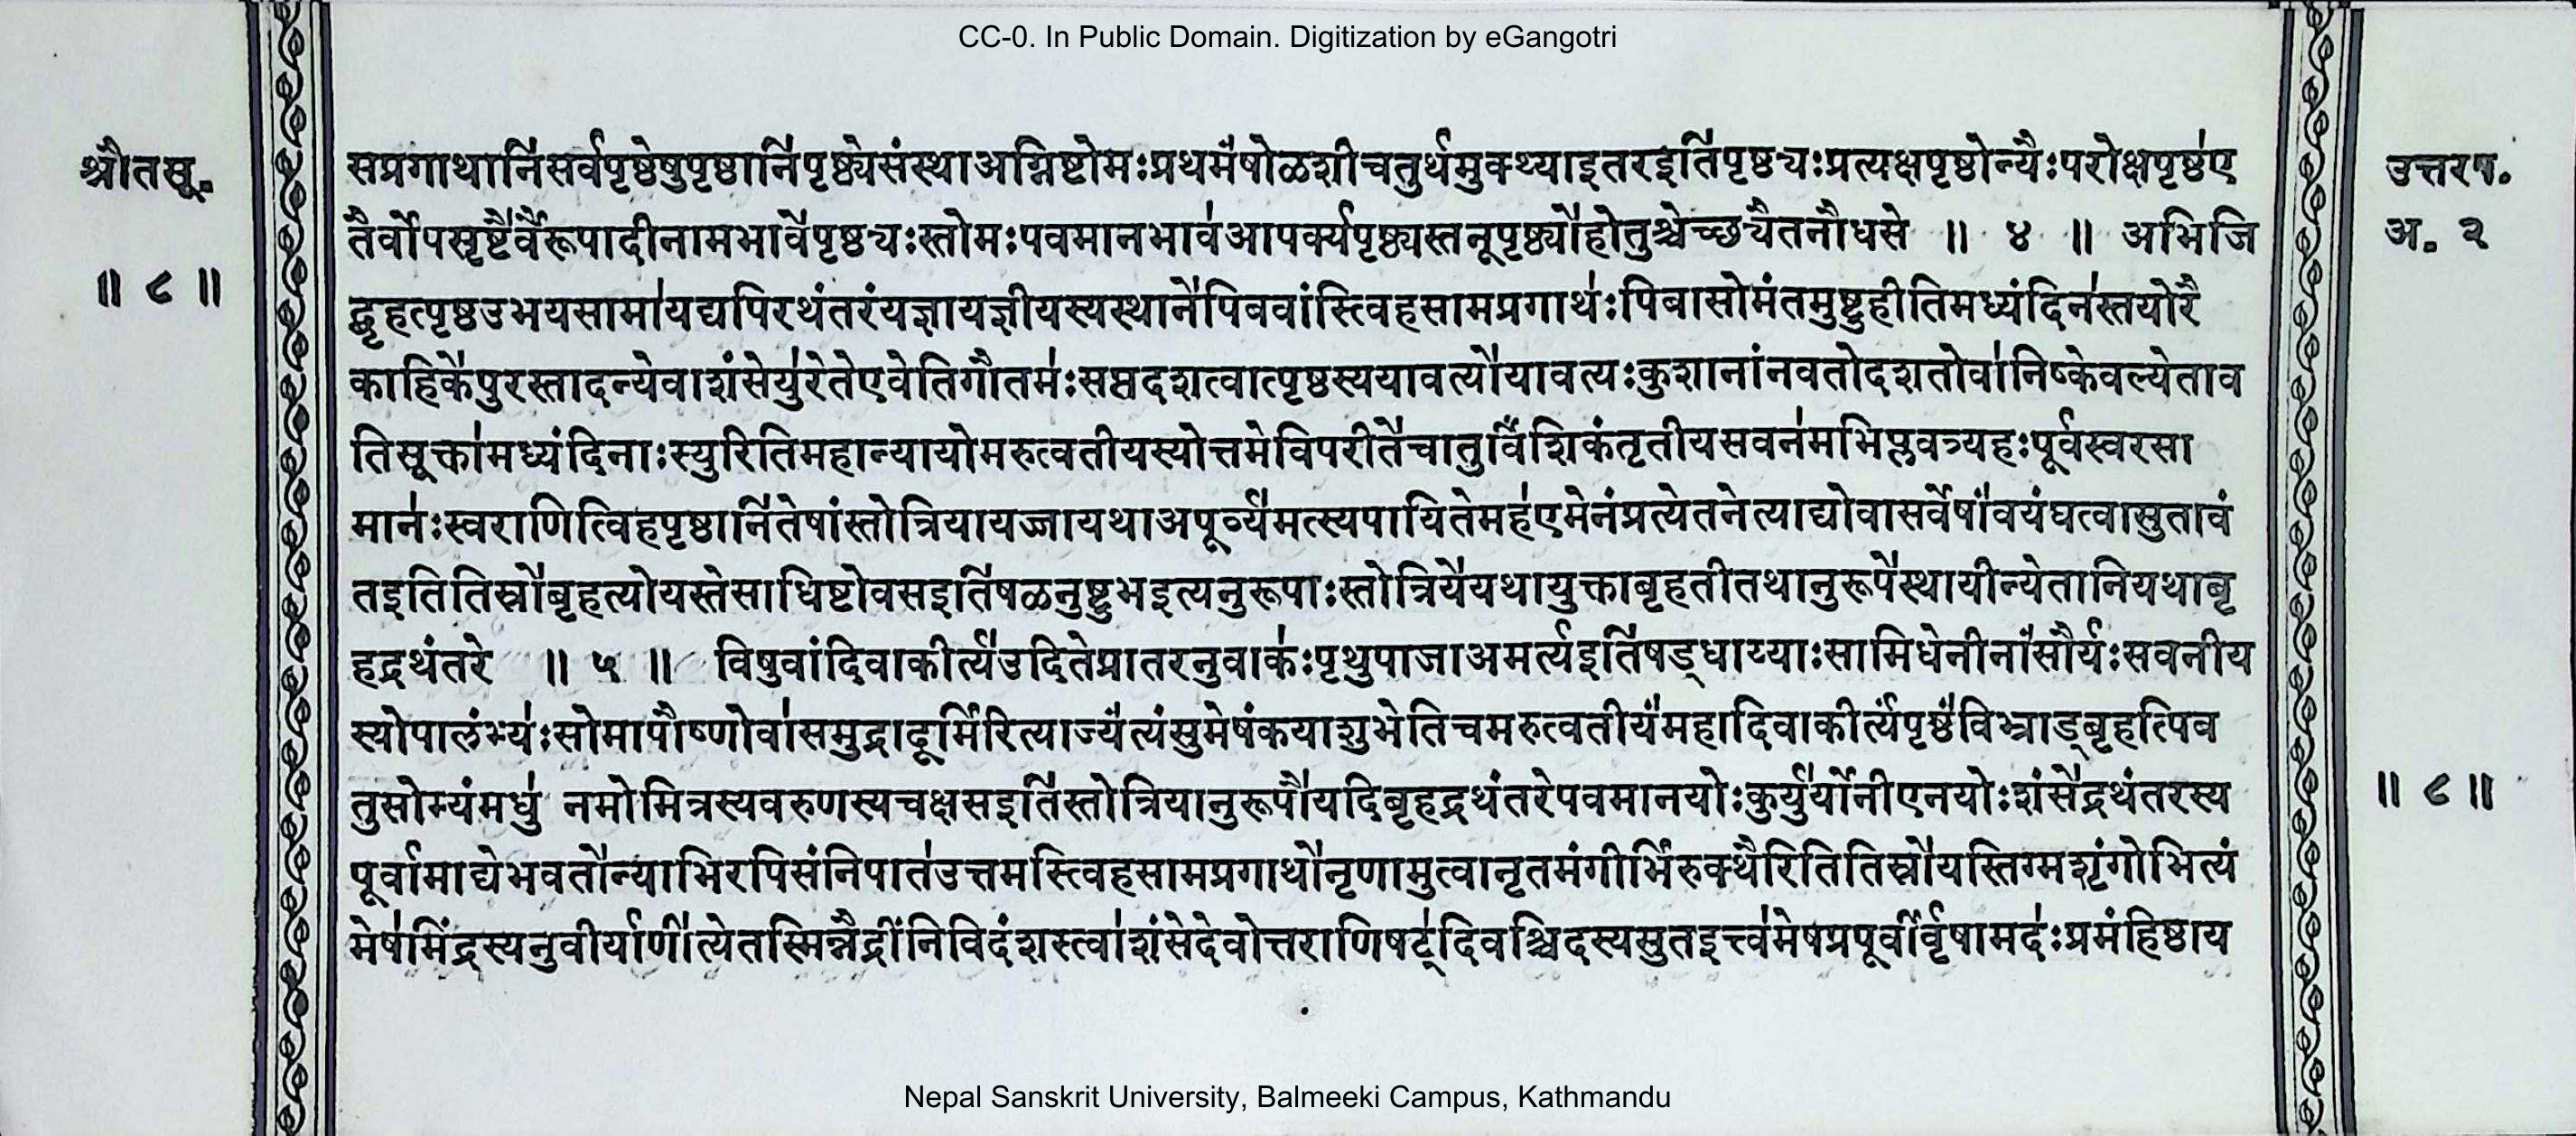 CC-0. In Public Domain. Digitization by eGangotri
श्रौतसू.
॥ ८ ॥
उत्तरष.
अ. २
सप्रगाथानि॑सर्वपृष्ठेषुपृष्ठानि॑पृष्ठ्येसंस्थाअग्निष्टोमःप्रथमे॑षोळशीचतुर्थमुक्थ्याइतरइति॑पृष्ठ्यःप्रत्यक्षपृष्ठोन्यैःपरोक्षपृष्ठ॑ए
तैर्वोपसृष्टै॑र्वैरूपादीनामभावे॑पृष्ठ्यःस्तोमःपवमानभाव॑आपर्क्यपृष्ठ्यस्तनूपृष्ठ्यो॑होतुश्चेच्छ्यैतनौधसे ॥ ४ ॥ अभिजि
द्बृहत्पृष्ठउभयसामा॑यद्यपिरथंतरंयज्ञायज्ञीयस्यस्थाने॑पिबवांस्त्विहसामप्रगाथ॑ःपिबासोमंतमुष्टुहीतिमध्यंदिन॑स्तयोरै
काहिके॑पुरस्तादन्येवाशंसेयु॑रेतेएवेतिगौतम॑ःसप्तदशत्वात्पृष्ठस्ययावत्यो॑यावत्यःकुशानांनवतोदशतोवा॑निष्केवल्येताव
तिसूक्ता॑मध्यंदिनाःस्युरितिमहान्यायोमरुत्वतीयस्योत्तमेविपरीते॑चातुर्विं॑शिकंतृतीयसवन॑मभिप्लवत्र्यहःपूर्वस्वरसा
मान॑ःस्वराणित्विहपृष्ठानि॑तेषांस्तोत्रियायज्जायथाअपूर्व्य॑मत्स्यपायितेमह॑एमेनंप्रत्येतनेत्याद्योवासर्वेषां॑वयंघत्वासुतावं
तइतितिस्रो॑बृहत्योयस्तेसाधिष्टोवसइति॑षळनुष्टुभइत्यनुरूपाःस्तोत्रिये॑यथायुक्ताबृहतीतथानुरूपे॑स्थायीन्येतानियथाबृ
हद्रथंतरे ॥ ५ ॥ विषुवांदिवाकीर्त्य॑उदितेप्रातरनुवाक॑ःपृथुपाजाअमर्त्यइति॑षड्धाय्याःसामिधेनीनां॑सौर्यःसवनीय
स्योपालंभ्य॑ःसोमापौष्णोवा॑समुद्रादूर्मिंरित्याज्यं॑त्यंसुमेषंकयाशुभेतिचमरुत्वतीयं॑महादिवाकीर्त्यंपृष्ठं॑विभ्राड्बृहत्पिब
तुसोम्यंमधु॑ नमोमित्रस्यवरुणस्यचक्षसइति॑स्तोत्रियानुरूपौ॑यदिबृहद्रथंतरेपवमानयोःकुर्यु॑र्योनीएनयोःशंसे॑द्रथंतरस्य
पूर्वामाद्येभवतो॑न्याभिरपिसंनिपात॑उत्तमस्त्विहसामप्रगाथो॑नृणामुत्वानृतमंगीर्भिंरुक्थैरितितिस्रो॑यस्तिग्मशृंगोभित्यं
मेष॑मिंद्रस्यनुवीर्याणी॑त्येतस्मिन्नैंद्रींनिविदंशस्त्वा॑शंसेदेवोत्तराणिषट्॑दिवश्चिदस्यसुतइत्त्व॑मेषप्रपूर्वीर्वृ॑षामद॑ःप्रमंहिष्ठाय
॥ ८ ॥
Nepal Sanskrit University, Balmeeki Campus, Kathmandu